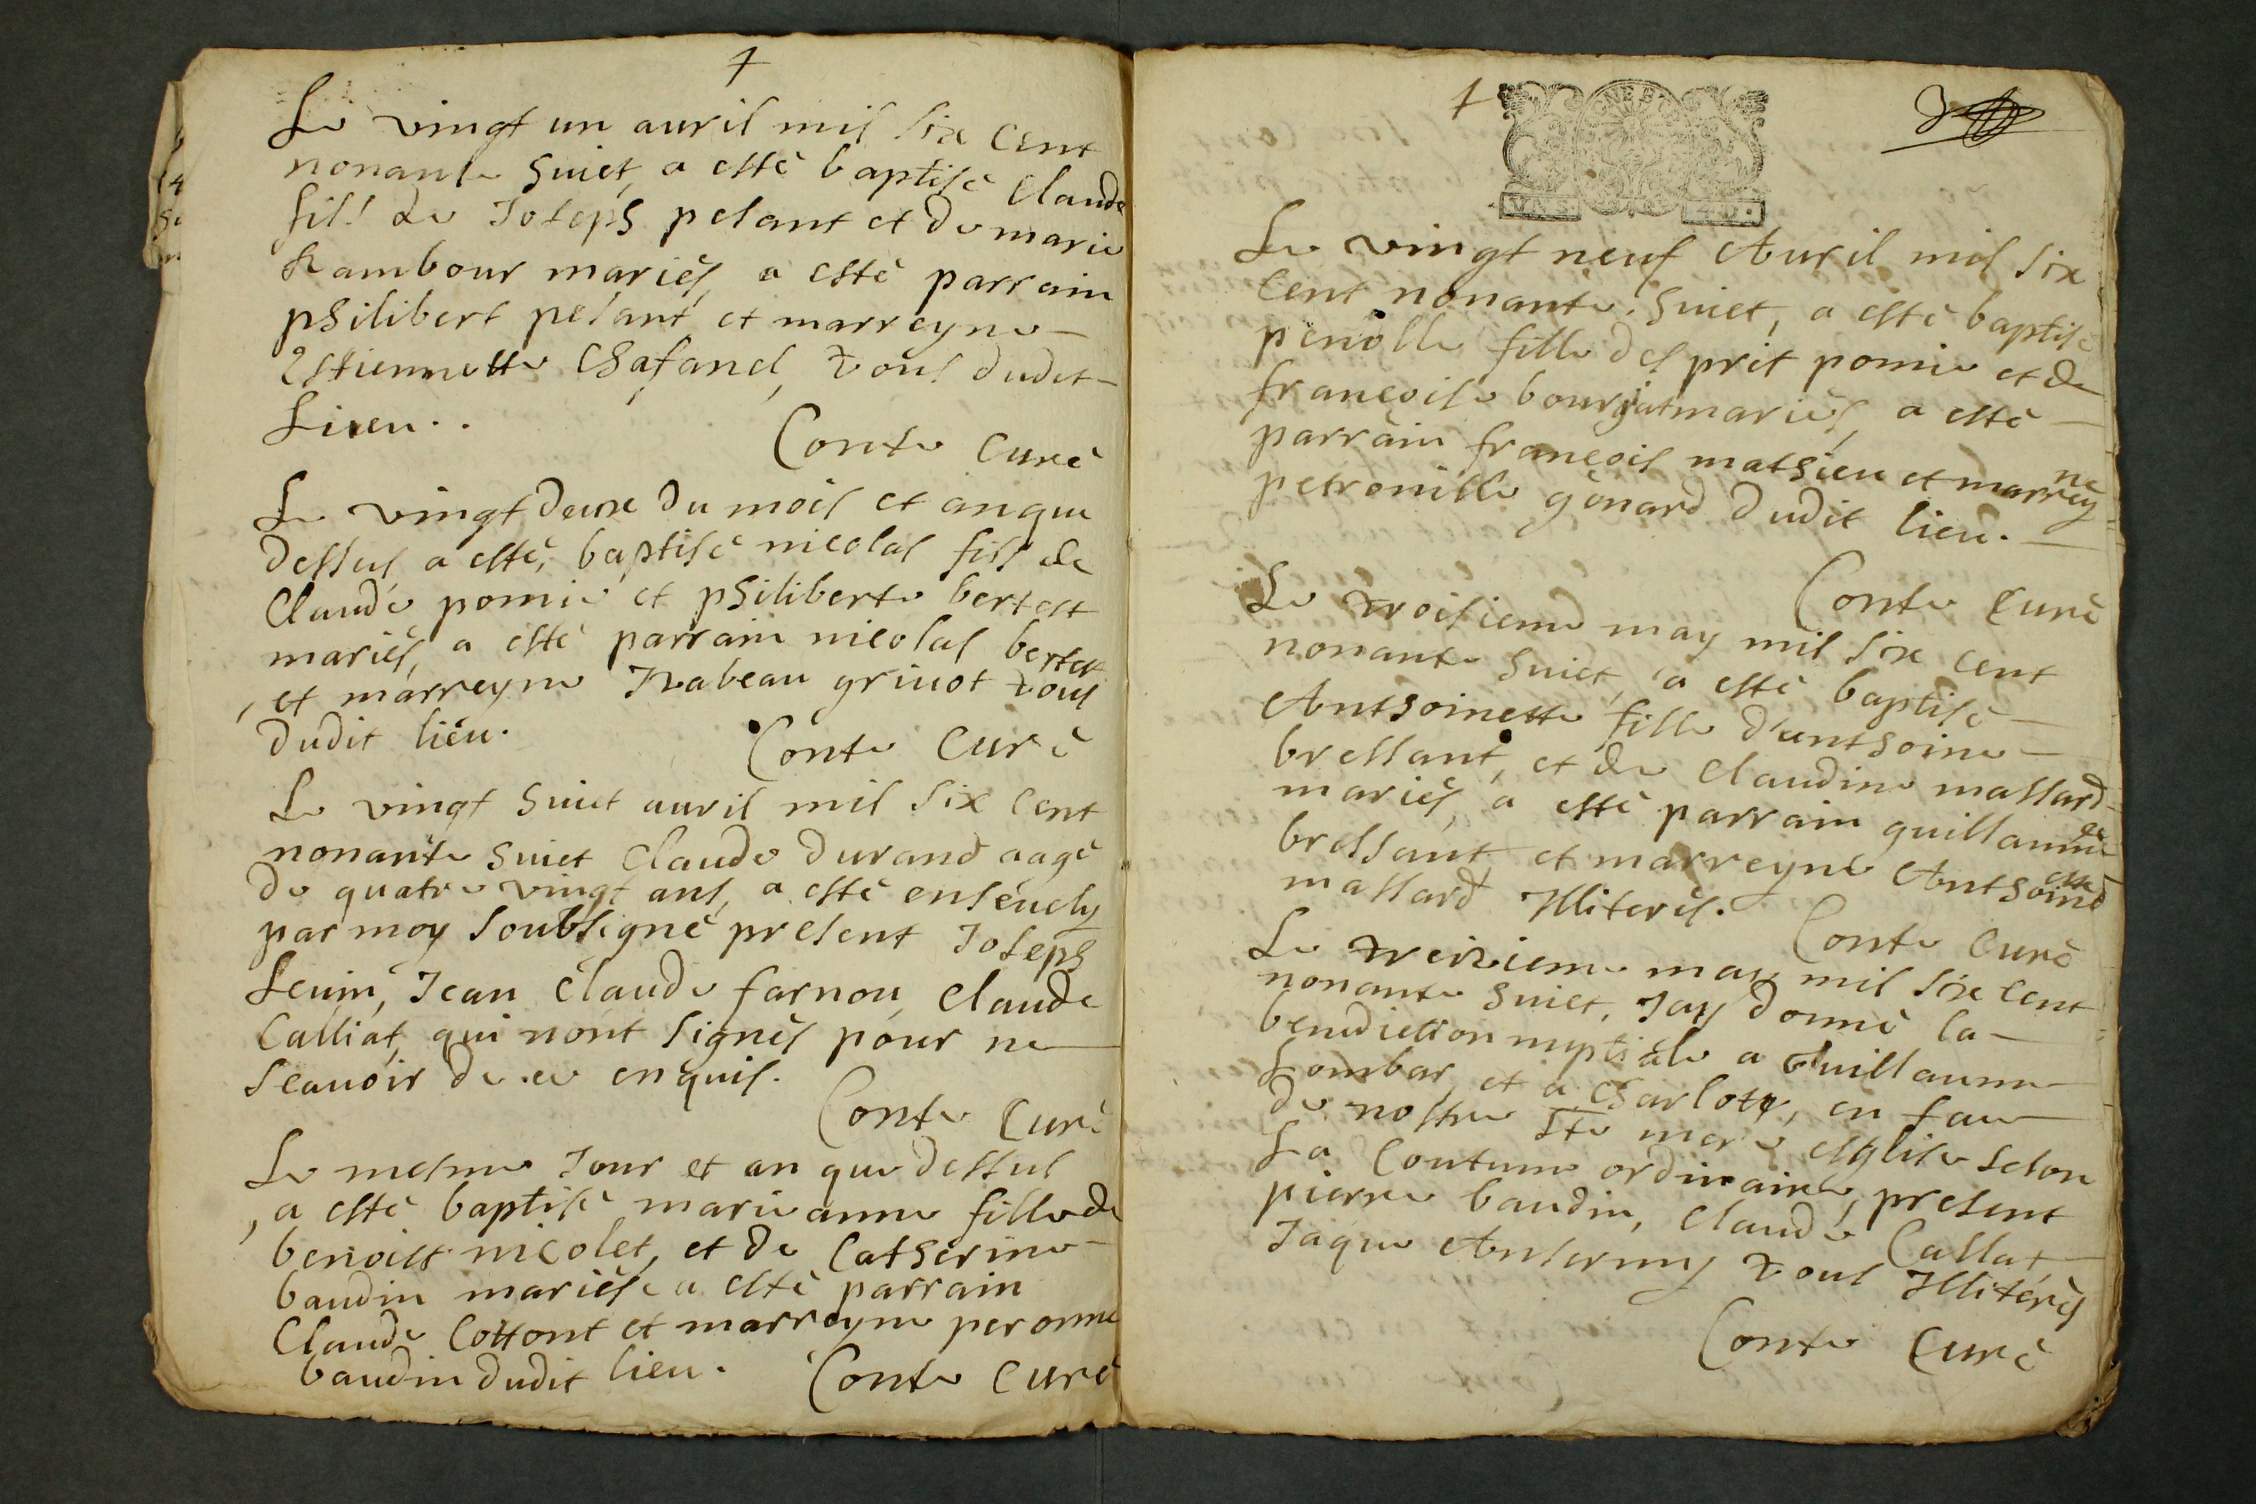 Le vingt un auril mil six cent
nonante huict, a esté baptisé Claude
fils de Joseph pelant et de marie
Rambour mariés, a esté parrain
philibert pelant, et marreyne
Estiennette Chafanel, tous dudit
Lieu..
Conte Curé
Le vingt deux du mois et an que
dessus, a esté, baptisé nicolas fils de
Claude pomie et philiberte bertest
mariés, a esté parrain nicolas bertest
, et marreyne Izabeau griuot tous
dudit lieu.
Conte Curé
Le vingt huict auril mil six cent
nonante huict Claude durand aagé
de quatre vingt ans, a esté enseuely
par moy soubsigné present Joseph
Leuin, Jean Claude farnou, Claude
Calliat, qui nont signés pour ne
scauoir de ce enquis.
Conte Curé
Le mesme Jour et an que dessus
, a esté baptisé marie anne fille de
benoist nicolet, et de Catherine
baudin mariés, a esté parrain
Claude Cottont et marreyne peronne
baudin dudit lieu.
Conte Curé
Le vingt neuf Auril mil six
Cent nonante huict, a esté baptisé
penolle fille desprit pomie et de
francoise bourjat mariés, a esté
parrain francois mathieu et marreyne
petronille gonard dudit lieu.
Conte Curé
Le troisieme may mil six cent
nonante huict, a esté baptisé
Anthoinette fille d'anthoine
bressant, et de Claudine massard
mariés, a esté parrain guillaume
bressant, et marreyne Anthoinette
massard Illiterés.
Conte Curé
Le treizieme may mil six cent
nonante huict, Jay donné la
benediction nuptiale a Guillaume
Lombar, et a Charlote, en face
de nostre ste mere esglise selon
La Coutume ordinaire, present
pierre baudin, Claude Callat
Jaque Anselmes tous Illiterés
Conte Curé